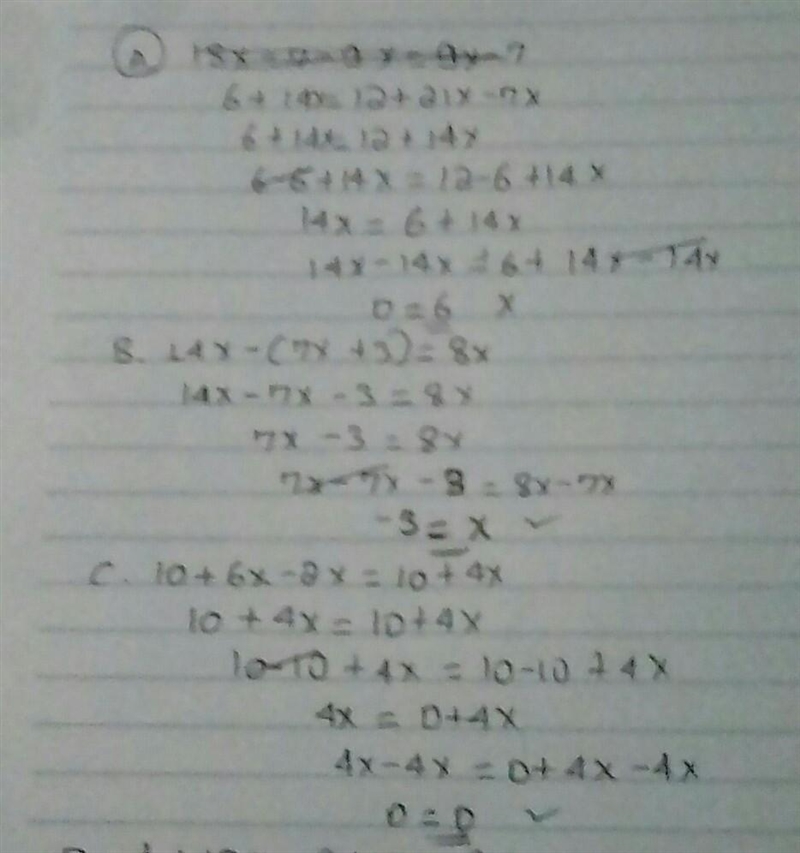 A
6 + 14x = 12 + 21x - 7x
6 + 14x = 12 + 14x
6 - 6 + 14x = 12 - 6 + 14x
14x = 6 + 14x
14x - 14x = 6 + 14x - 14x
0 = 6 x
B. 14x - (7x + 3) = 8x
14x - 7x - 3 = 8x
7x - 3 = 8x
7x - 7x - 3 = 8x - 7x
-3 = x ✓
C. 10 + 6x - 2x = 10 + 4x
10 + 4x = 10 + 4x
10 - 10 + 4x = 10 - 10 + 4x
4x = 0 + 4x
4x - 4x = 0 + 4x - 4x
0 = 0 ✓